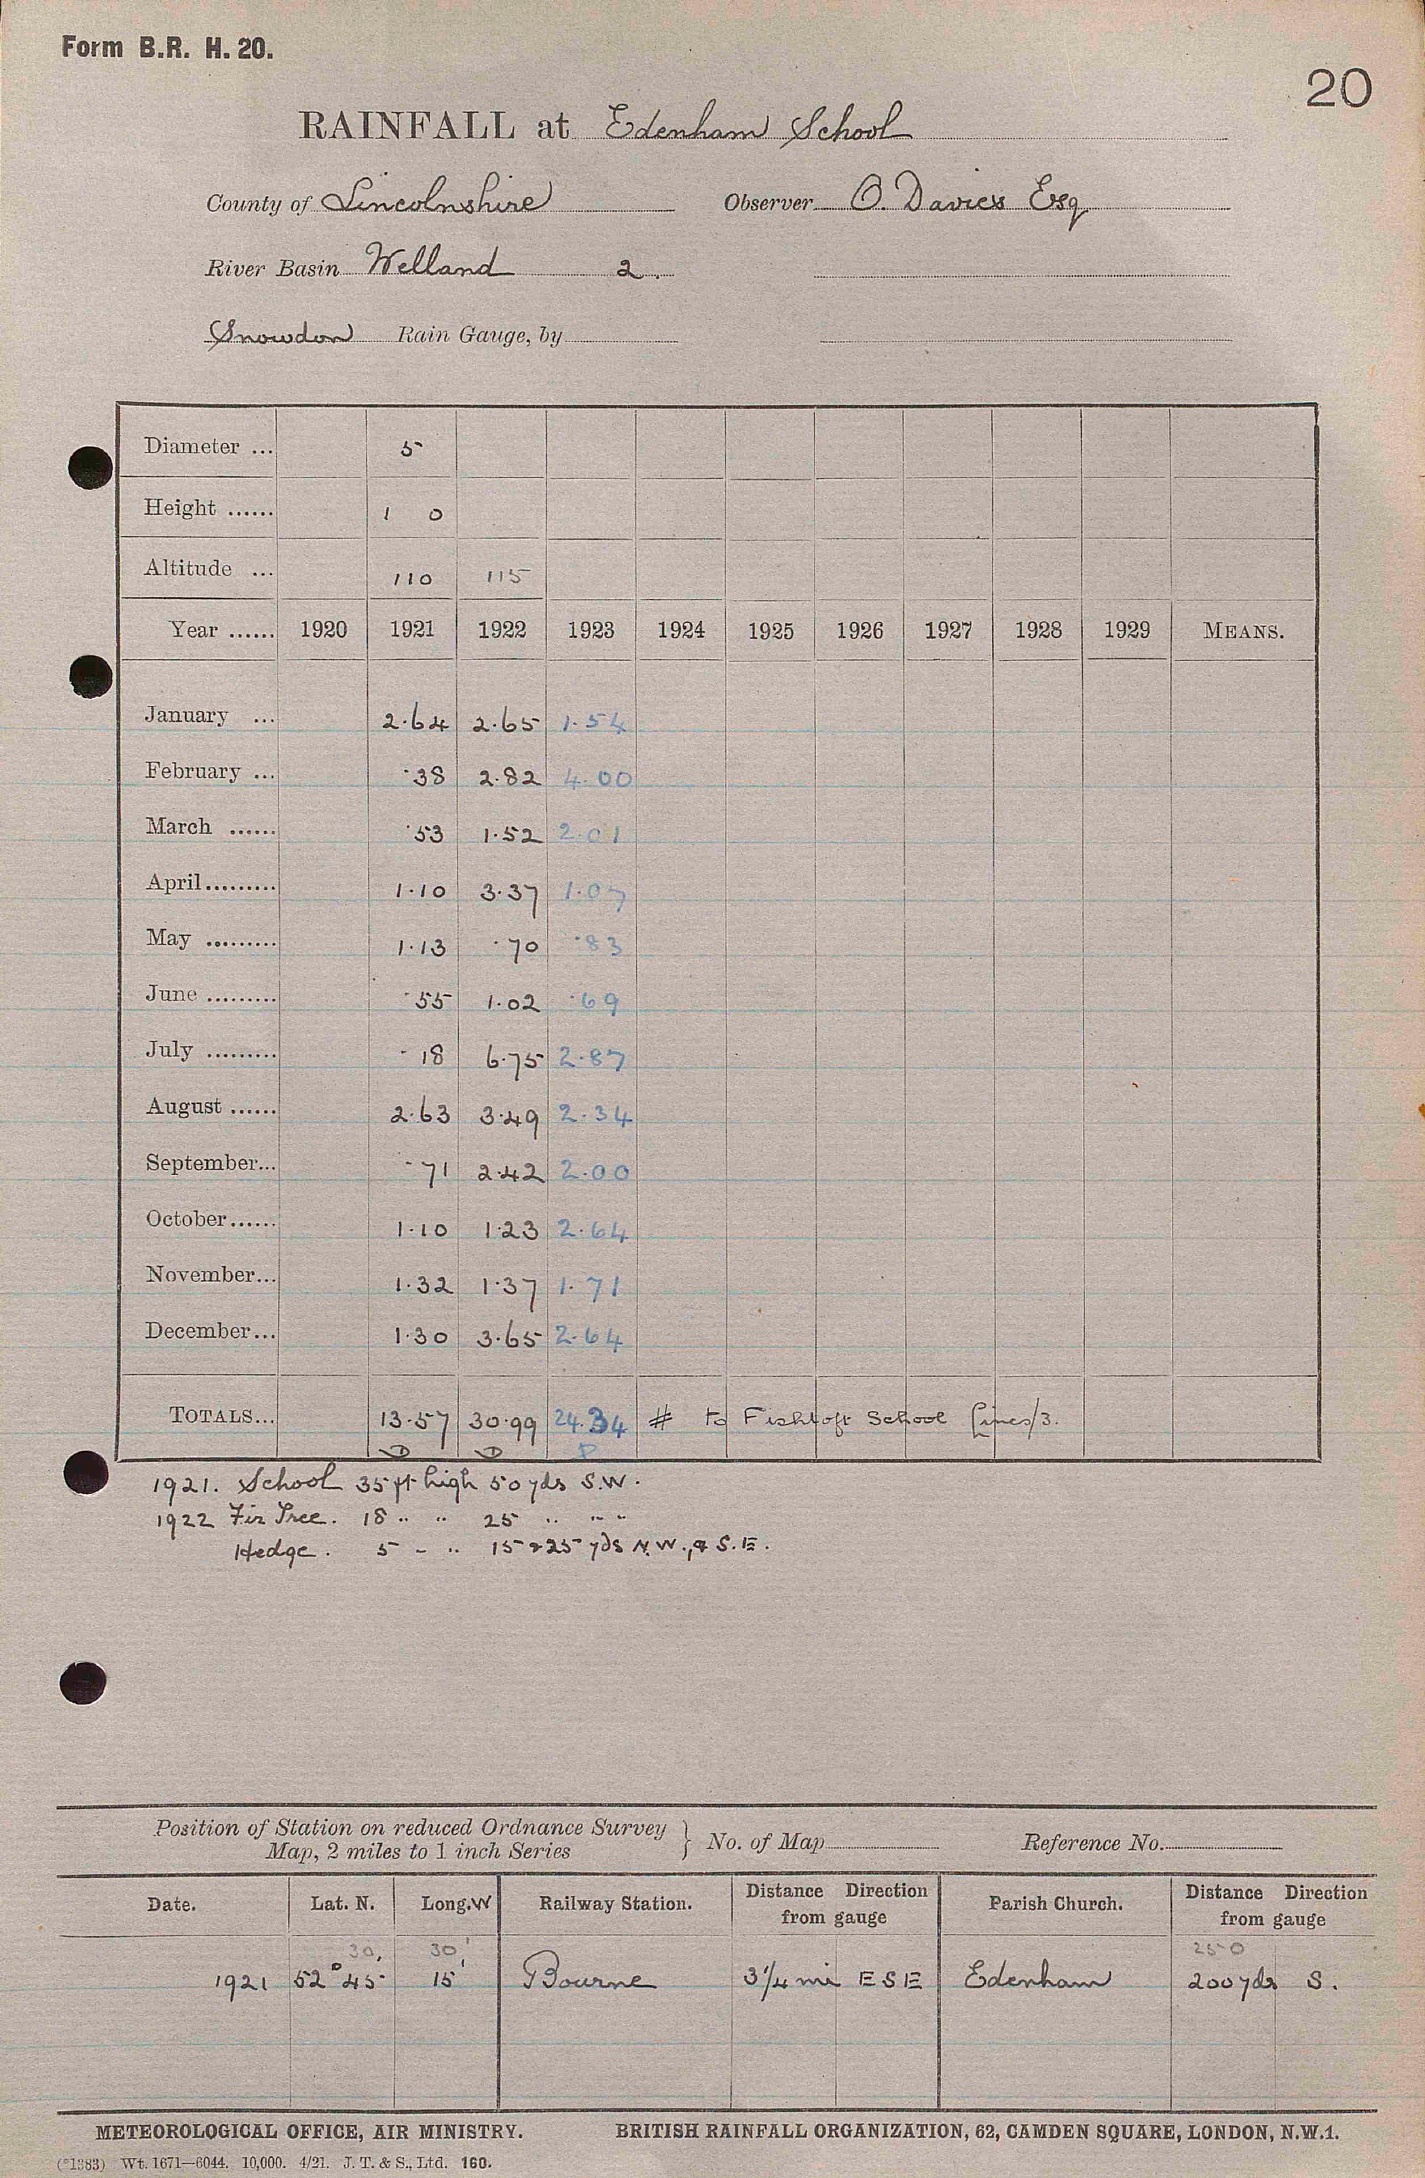 Form B.R. H. 20.
20
RAINFALL at Edenham School
County of Lincolnshire Observer O. Davies Esq
River Basin Welland 2.
Snowdon Rain Gauge, by
Diameter ... 5
Height ...... 1 0
Altitude ... 110 115
Year ...... 1920 1921 1922 1923 1924 1925 1926 1927 1928 1929 MEANS.
January ... 2.64 2.65 1.54
February ... .38 2.82 4.00
March ...... .53 1.52 2.01
April ......... 1.10 3.37 1.07
May ......... 1.13 .70 .83
June ......... .55 1.02 .69
July ......... .18 6.75 2.87
August ...... 2.63 3.49 2.34
September... .71 2.42 2.00
October...... 1.10 1.23 2.64
November... 1.32 1.37 1.71
December... 1.30 3.65 2.64
TOTALS... 13.57 30.99 24.34 # to Fishtoft School Lincs/3.
D D P
1921. School 35 ft high 50 yds S.W.
1922 Fir Tree. 18 " " 25 " " "
Hedge. 5 " " 15 & 25 yds N.W., & S.E.
Position of Station on reduced Ordnance Survey
Map, 2 miles to 1 inch Series } No. of Map Reference No.
Date. Lat. N. Long. W Railway Station. Distance Direction from gauge Parish Church. Distance Direction from gauge
30, 30' 250
1921 52° 45 15' Bourne 3 1/4 mi E S E Edenham 200 yds S.
METEOROLOGICAL OFFICE, AIR MINISTRY. BRITISH RAINFALL ORGANIZATION, 62, CAMDEN SQUARE, LONDON, N.W.1.
(*1383) Wt. 1671—6044. 10,000. 4/21. J. T. & S., Ltd. 160.